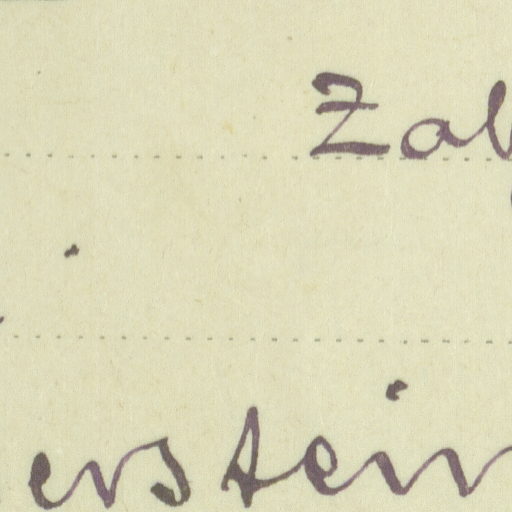 Zab
erstein